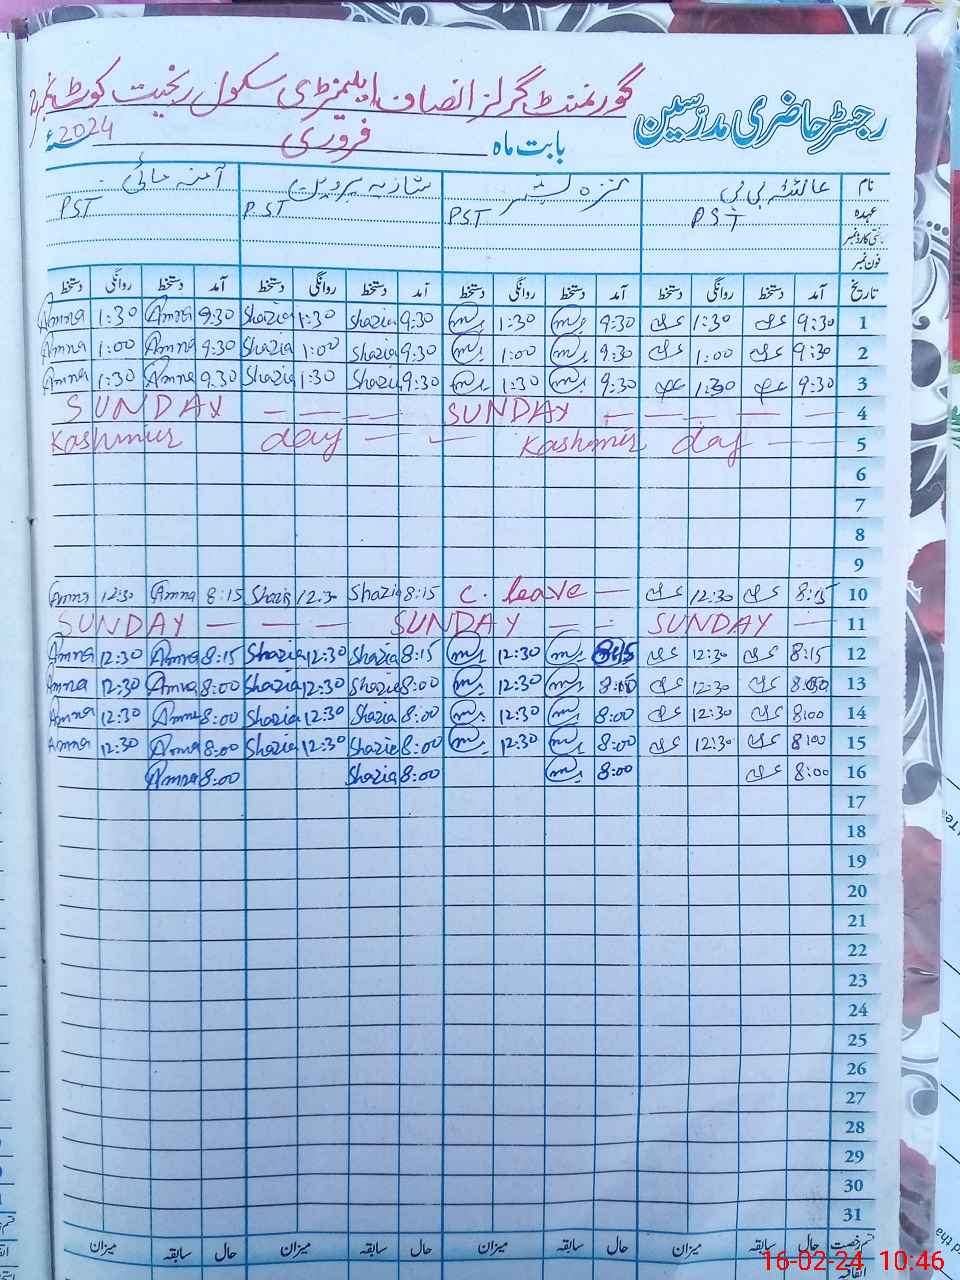 گورنمنٹ گرلز انصاف ایلیمنٹری سکول رخیت کوٹ نمبر 2
رجسٹر حاضری مدرسین
بابت ماہ فروری 2024ء
نام عائشہ بی بی کنزہ بشیر شازیہ پروین آمنہ مائی
عہدہ PST PST PST PST
شناختی کارڈ نمبر
فون نمبر
تاریخ آمد دستخط روانگی دستخط آمد دستخط روانگی دستخط آمد دستخط روانگی دستخط آمد دستخط روانگی دستخط
Amna 1:30 Amna 9:30 Shazia 1:30 Shazia 9:30 1:30 9:30 1:30 9:30 1
Amna 1:00 Amna 9:30 Shazia 1:00 Shazia 9:30 1:00 9:30 1:00 9:30 2
Amna 1:30 Amna 9:30 Shazia 1:30 Shazia 9:30 1:30 9:30 1:30 9:30 3
SUNDAY — — — — SUNDAY — — — — — 4
Kashmir day — — Kashmir day — — 5
6
7
8
9
Amna 12:30 Amna 8:15 Shazia 12:30 Shazia 8:15 C. leave — 12:30 8:15 10
SUNDAY — — — SUNDAY — — SUNDAY — 11
Amna 12:30 Amna 8:15 Shazia 12:30 Shazia 8:15 12:30 8:15 12:30 8:15 12
Amna 12:30 Amna 8:00 Shazia 12:30 Shazia 8:00 12:30 8:00 12:30 8:00 13
Amna 12:30 Amna 8:00 Shazia 12:30 Shazia 8:00 12:30 8:00 12:30 8:00 14
Amna 12:30 Amna 8:00 Shazia 12:30 Shazia 8:00 12:30 8:00 12:30 8:00 15
Amna 8:00 Shazia 8:00 8:00 8:00 16
17
18
19
20
21
22
23
24
25
26
27
28
29
30
31
قسم رخصت حال سابقہ میزان حال سابقہ میزان حال سابقہ میزان حال سابقہ میزان
اتفاقیہ
16-02-24 10:46